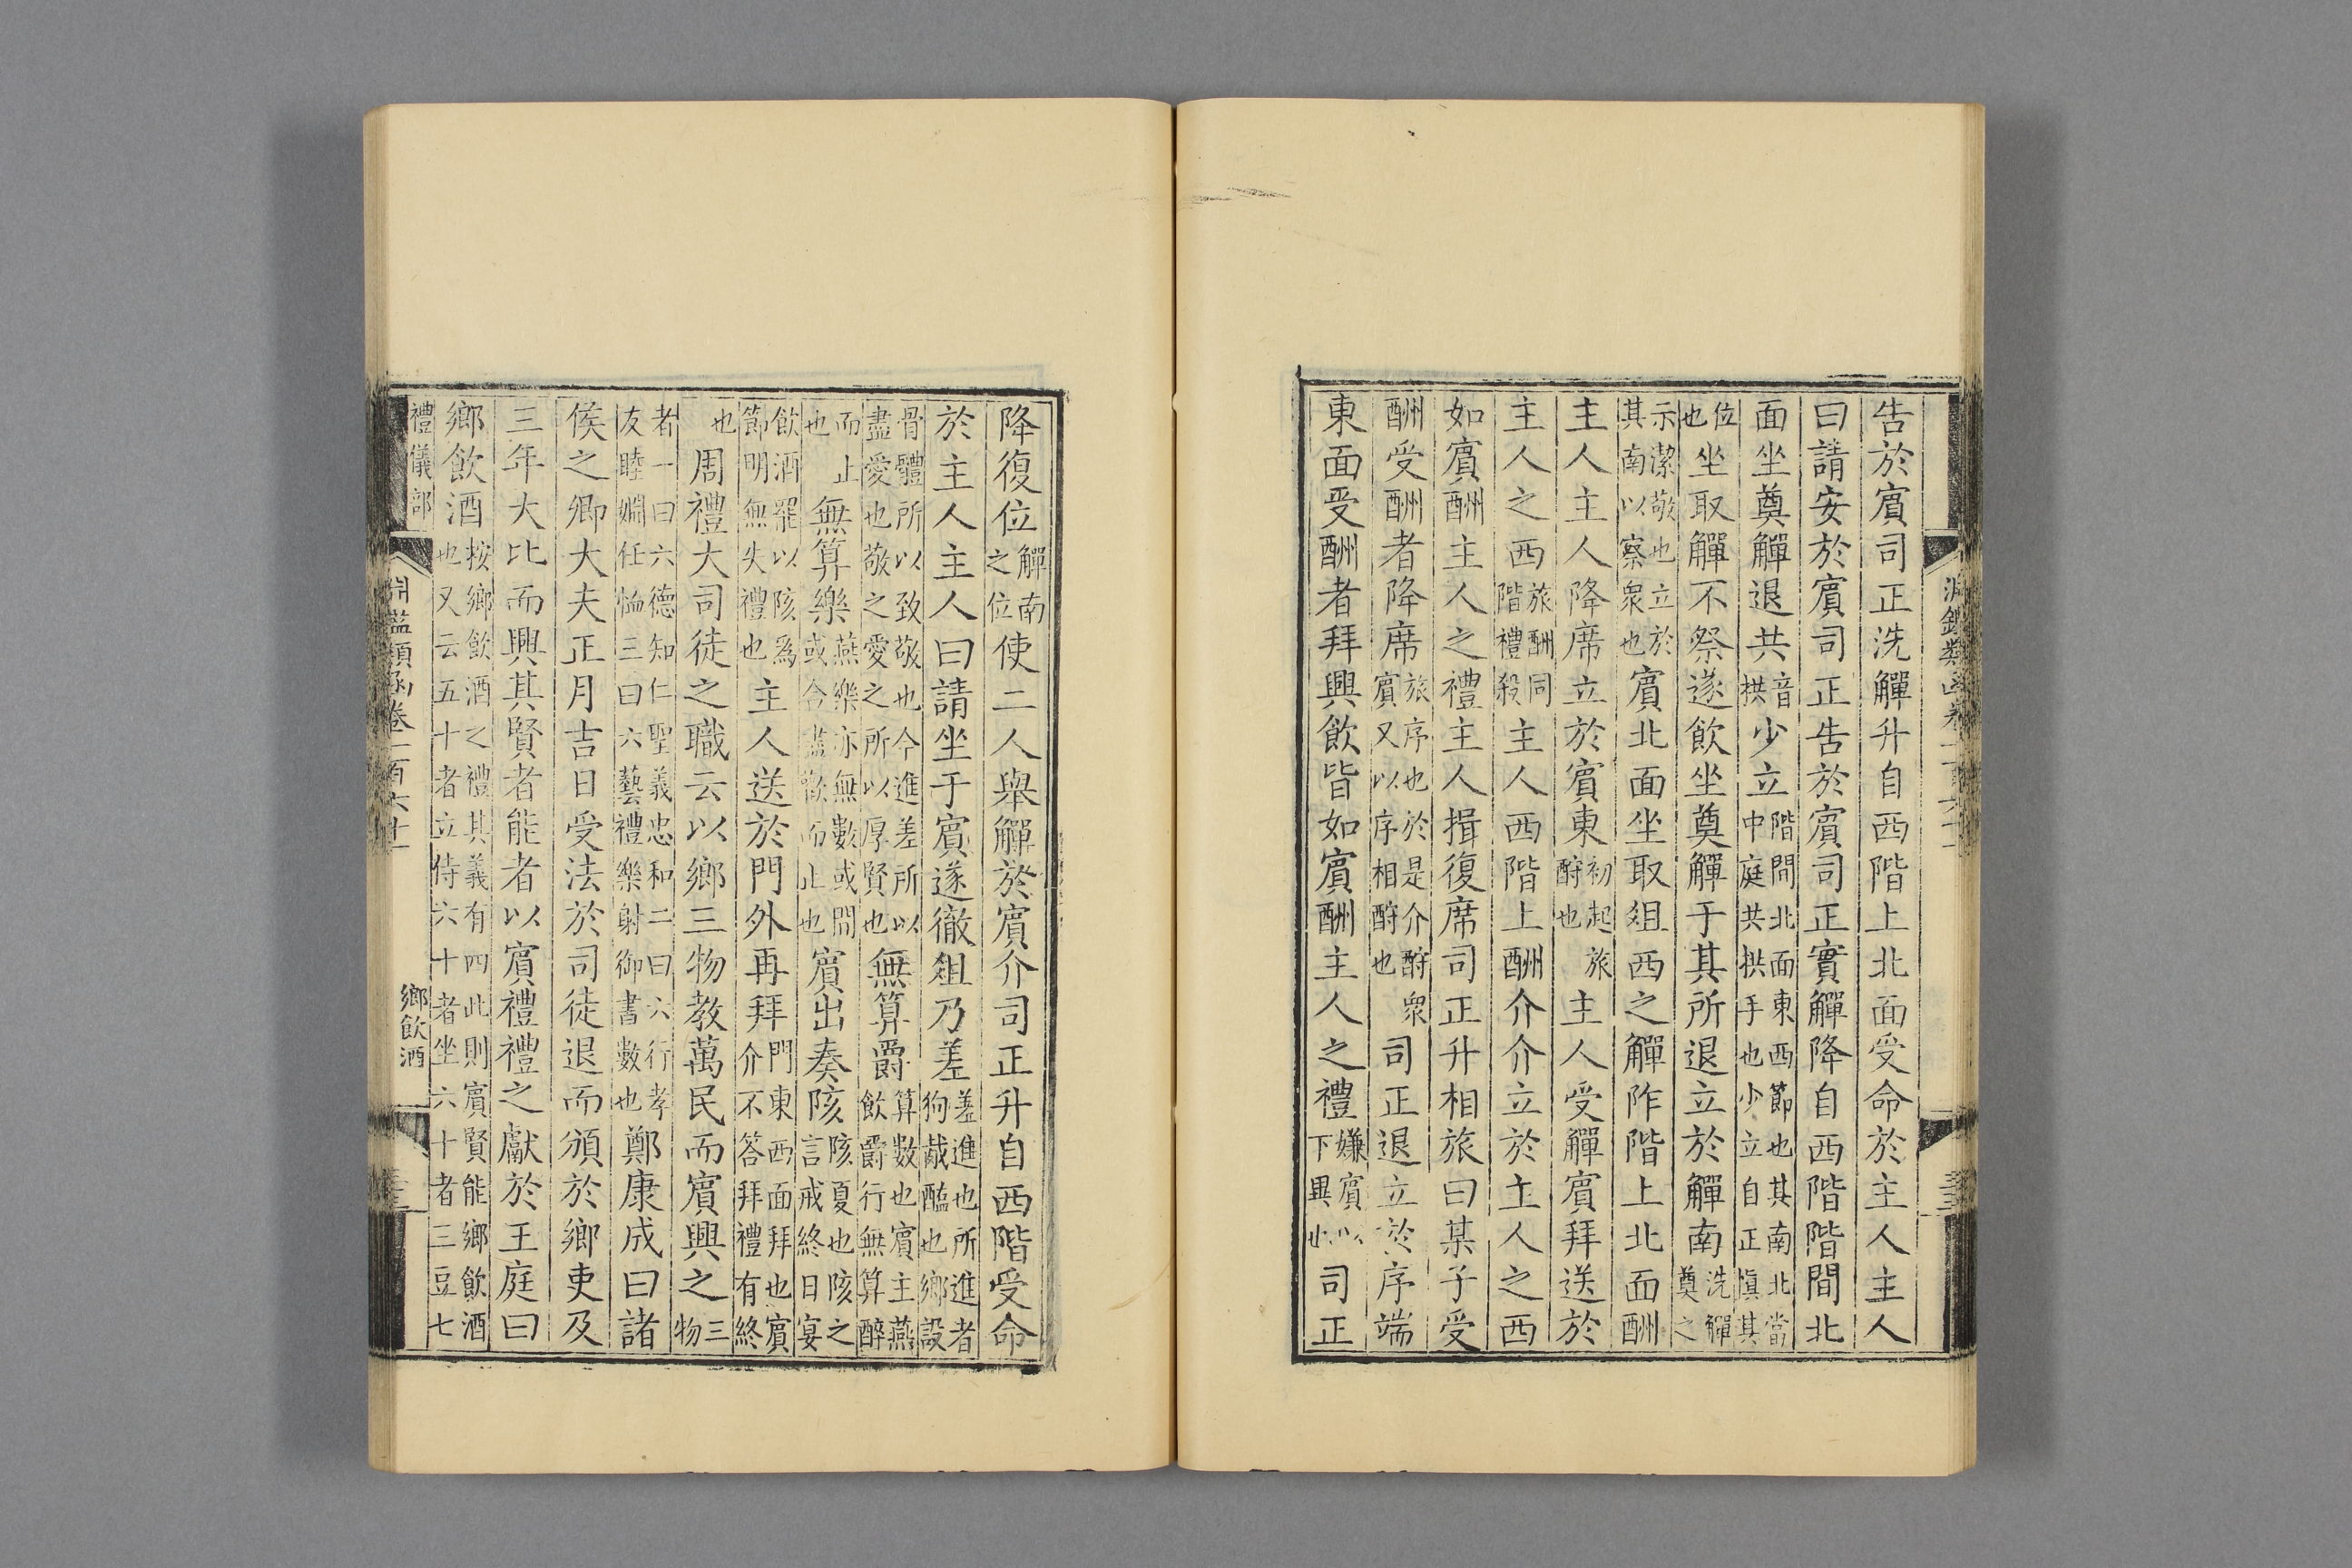 告於賓司正洗觶升自西階上北面受命於主人主人
曰請安於賓司正告於賓司正實觶降自西階階間北
面坐奠觶退共音拱少立階間北面東西節也其南北當中庭共拱手也少立自正愼其
位也坐取觶不祭遂飲坐奠觶于其所退立於觶南洗觶奠之
示潔敬也立於其南以察衆也賓北面坐取俎西之觶阼階上北面酬
主人主人降席立於賓東初起旅酬也主人受觶賓拜送於
主人之西旅酬同階禮殺主人西階上酬介介立於主人之西
如賓酬主人之禮主人揖復席司正升相旅曰某子受
酬受酬者降席旅序也於是介酬衆賓又以序相酬也司正退立於序端
東面受酬者拜興飲皆如賓酬主人之禮嫌賓以下異也司正
降復位觶南之位使二人舉觶於賓介司正升自西階受命
於主人主人曰請坐于賓遂徹俎乃羞羞進也所進者狗胾醢也鄉設
骨體所以致敬也今進羞所以盡愛也敬之愛之所以厚賢也無算爵算數也賓主燕飲爵行無算醉
而止也無算樂燕樂亦無數或間或合盡歡而止也賓出奏陔陔夏也陔之言戒終日宴
飲酒罷以陔爲節明無失禮也主人送於門外再拜門東西面拜也賓介不答拜禮有終
也周禮大司徒之職云以鄉三物教萬民而賓興之三物
者一曰六德知仁聖義忠和二曰六行孝友睦婣任恤三曰六藝禮樂射御書數也鄭康成曰諸
侯之卿大夫正月吉日受法於司徒退而頒於鄉吏及
三年大比而興其賢者能者以賓禮禮之獻於王庭曰
鄉飲酒按鄉飲酒之禮其義有四此則賓賢能鄉飲酒也又云五十者立侍六十者坐六十者三豆七
禮儀部
淵鑑類函卷一百六十
鄉飲酒